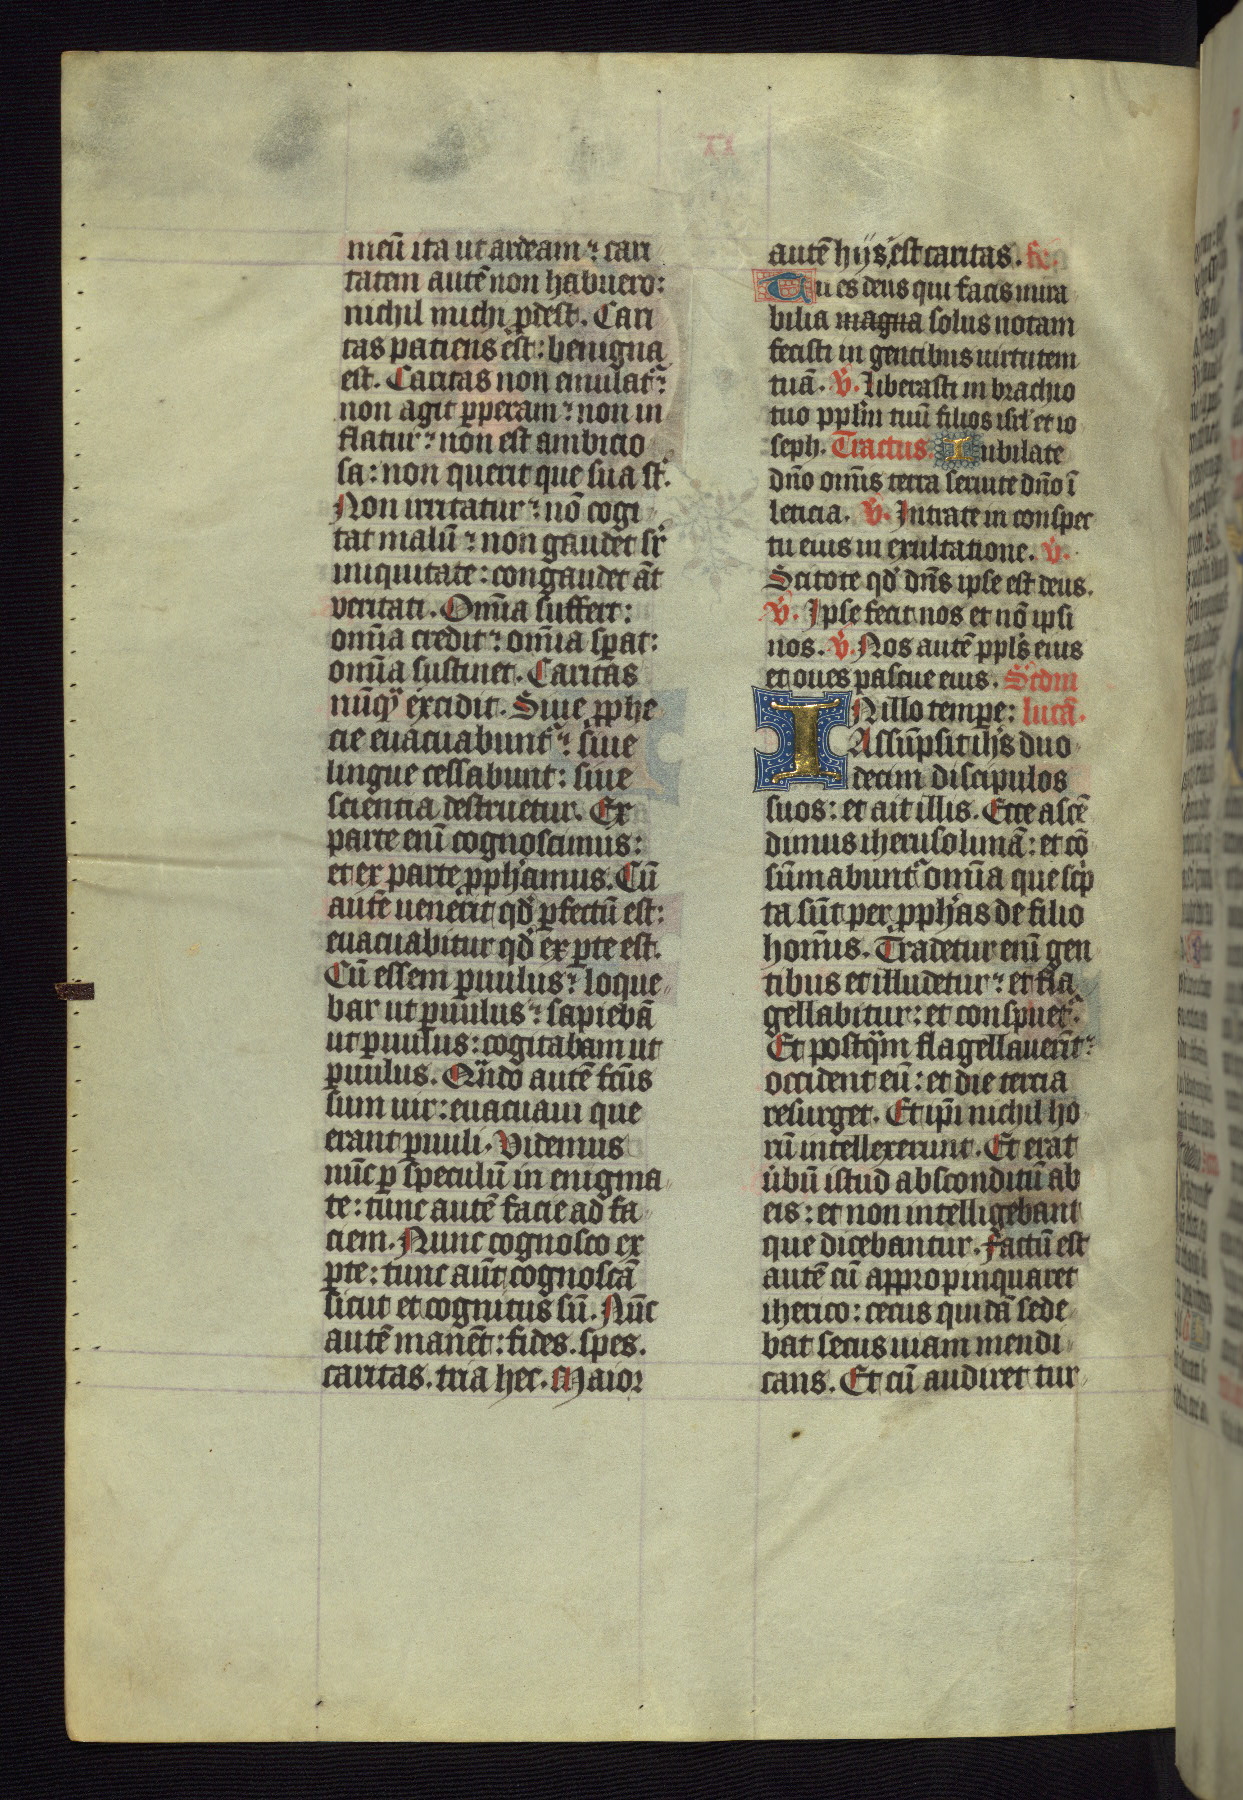 meū ita ut ardeam : cari
tatem autē non habuero :
nichil michi ꝓdest. Cari
tas patiens est : benigna
est. Caritas non emulat᷑ :
non agit ꝑperam : non in
flatur : non est ambicio
sa : non querit que sua st̄.
Non irritatur : nō cogi
tat malū : non gaudet sr̄
iniquitate : congaudet āt
veritati. Om̄ia suffert :
om̄ia credit : om̄ia sꝑat :
om̄ia sustinet. Caritas
nūqͣ excidit. Siue ꝓphe
cie euacuabunt᷑ : siue
lingue cessabunt : siue
scientia destruetur. Ex
parte enī cognoscimus :
et ex parte ꝓph̄amus. Cū
autē uenerit qd̄ ꝑfectū est :
euacuabitur qd̄ ex ꝑte est.
Cū essem ꝑuulus : loque
bar ut ꝑuulus : sapiebā
ut ꝑuulus : cogitabam ut
ꝑuulus. Qn̄do autē fc̄us
sum uir : euacuaui que
erant ꝑuuli. Videmus
nūc ꝑ speculū in enigma
te : tunc autē facie ad fa
ciem. Nunc cognosco ex
ꝑte : tunc aūt cognoscā
sicut et cognitus sū. Nūc
autē manēt : fides. spes.
caritas. tria hec. Maior
xx
autē hijs est caritas.
Tu es deus qui facis mira
bilia magna solus notam
fecisti in gentibus uirtutem
tuā. v̄. Liberasti in brachio
tuo ppl̄m tuū filios isrl̄ et io
seph. Tractus. Iubilate
dn̄o om̄is terra seruite dn̄o ī
leticia. v̄. Intrate in conspec
tu eius in exultatione. v̄.
Scitote qd̄ dn̄s ipse est deus.
v̄. Ipse fecit nos et nō ipsi
nos. v̄. Nos autē ppl̄s eius
et oues pascue eius. Scdm̄
IN illo tempe : lucā.
Assūpsit ih̄s duo
decim discipulos
suos : et ait illis. Ecce ascē
dimus iherusolimā : et cō
sūmabunt᷑ om̄ia que scͥp
ta sūt per ꝓph̄as de filio
homīs. Tradetur enī gen
tibus et illudetur : et fla
gellabitur : et conspuet᷑.
Et postqͣm flagellauerīt :
occident eū : et die tercia
resurget. Et ip̄i nichil ho
rū intellexerunt. Et erat
ūbū istud absconditū ab
eis : et non intelligebant
que dicebantur. Factū est
autē cū appropinquaret
iherico : cecus quidā sede
bat secus uiam mendi
cans. Et cū audiret tur